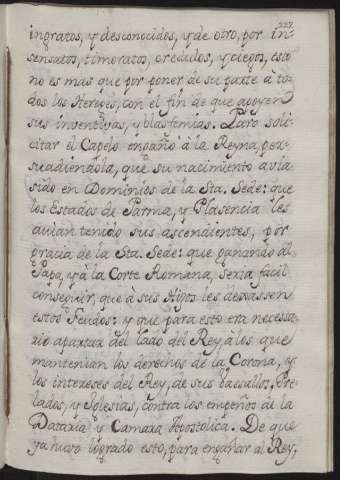 227
ingratos, y desconocidos, y de otro, por in-
sensatos, timoratos, credulos, y ciegos, esto
no es mas que por poner de su parte à to-
dos los Hereges, con el fin de que apoyen
sus inventivas, y blasfemias. Para soli-
citar el Capelo engañò à la Reyna, per-
suadiendola, que su nacimiento avia
sido en Dominios de la Sta. Sede: que
los Estados de Parma, y Plasencia les
avian tenido sus ascendientes, por
gracia de la Sta. Sede: que ganando al
Papa, y à la Corte Romana, seria facil
conseguir, que à sus Hijos les dexassen
estos Feudos: y que para esto era necessa-
rio apartar del lado del Rey à los que
mantenian los derechos de la Corona, y
los intereses del Rey, de sus Vassallos, Pre-
lados, y Iglesias, contra los empeños de la
Dataria y Camara Apostolica. De que
ya huvo logrado esto, para engañar al Rey,